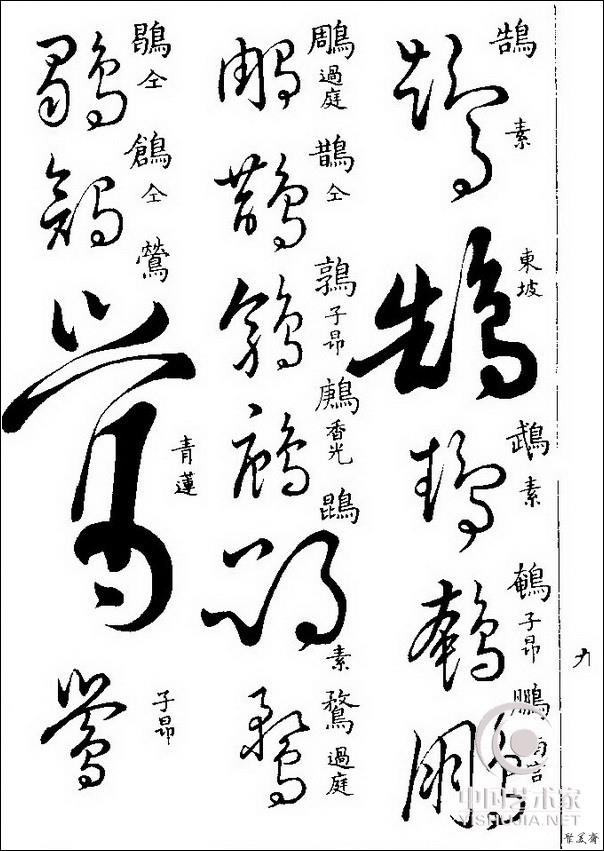 鵠 素
東坡
鵡 素
鵪 子昂
鵬
鵰 過庭
鵲 仝
鶉 子昂
鷓 香光
鵾 素
鶩 過庭
鶡 仝
鶬 仝
鶯 青蓮
子昂
九
中国艺术家
YISHUJIA.NET